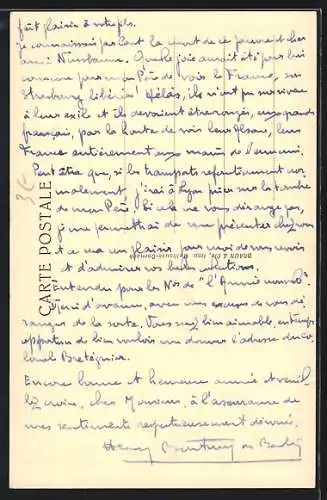 fait plaisir à votre fils.
Je connaissais par l'art la mort de ce pauvre et cher
ami Nusbaum. Quelle joie aurait été pour lui
comme pour mon Père de voir la France, son
Strasbourg libérés! Hélas, ils n'ont pu survivre
à leur exil et ils devaient être rongés, eux grands
français, par la honte de voir leur Alsace, leur
France entièrement aux mains de l'ennemi.
Peut être que, si les transports refonctionnent nor-
malement j'irai à Lyon prier sur la tombe
de mon Père. Si cela ne vous dérange pas,
je me permettrai de me présenter chez vous
et ce me un plaisir pour moi de vous revoir
et d'admirer vos belles collections.
Entendu pour les Nos de "l'Armée nouvelle"
Merci d'avance, avec mes excuses de vous dé-
ranger de la sorte. Vous seriez bien aimable, en temps
opportun de bien vouloir me donner l'adresse du Co-
lonel Brétégnier.
Encore bonne et heureuse année et veuil-
lez croire, cher Monsieur, à l'assurance de
mes sentiments respectueusement dévoués.
Henry
CARTE POSTALE
BRAUN & Cie, Imp. Mulhouse-Dornach
3€